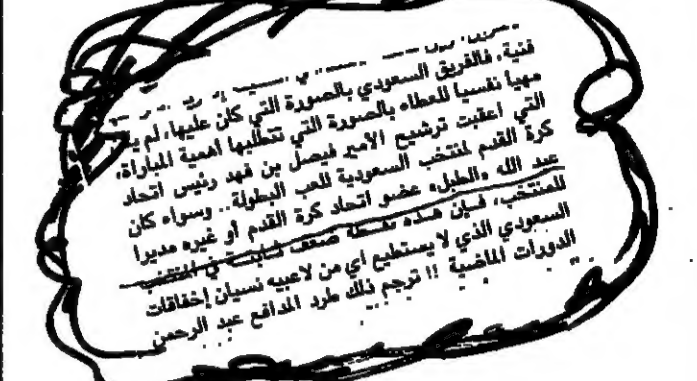 فنية. فالفريق السعودي بالصورة التي كان عليها، لم
مهيا نفسيا للعطاء بالصورة التي تتطلبها اهمية المباراة،
التي اعقبت ترشيح الامير فيصل بن فهد رئيس اتحاد
كرة القدم لمنتخب السعودية للعب البطولة.. وسواء كان
عبد الله «الطبل» عضو اتحاد كرة القدم أو غيره مديرا
للمنتخب، فإن هذه نقطة ضعف في المنتخب
السعودي الذي لا يستطيع اي من لاعبيه نسيان إخفاقات
الدورات الماضية !! ترجم ذلك طرد المدافع عبد الرحمن